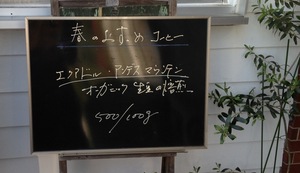 春のおすすめコーヒー
エクアドル・アンデスマウンテン
オーガニック 生豆の焙煎
500/100g